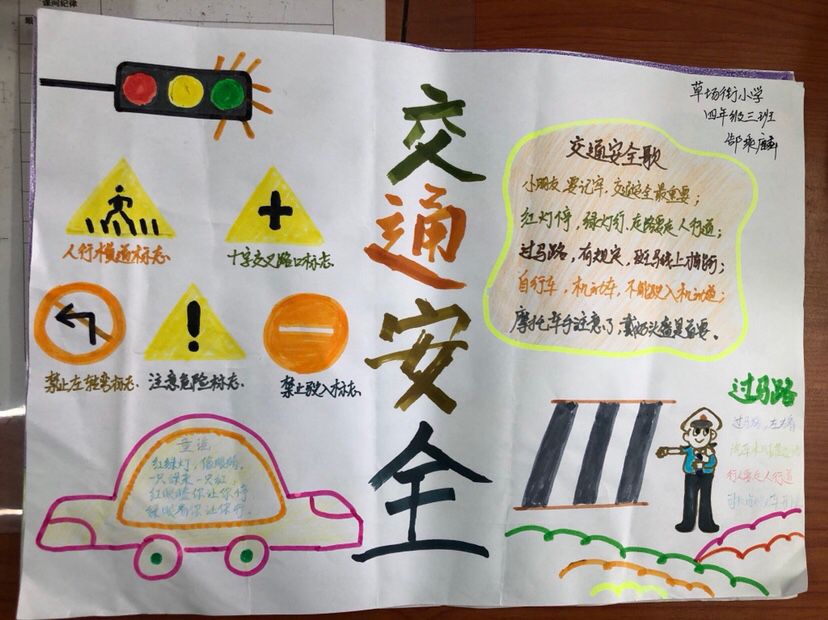 课间纪律
交通安全
草场街小学
四年级三班
人行横道标志
十字交叉路口标志
禁止左转弯标志
注意危险标志
禁止驶入标志
交通安全歌
小朋友，要记牢，交通安全最重要；
红灯停，绿灯行，走路要走人行道；
过马路，有规定，斑马线上
自行车，机动车，不能驶入机动道；
摩托车手注意了，戴好头盔最重要。
童谣
红绿灯，
一只绿来一只红，
红眼睛你让你停，
绿眼
过马路
过马路，左右看
行人要走人行道